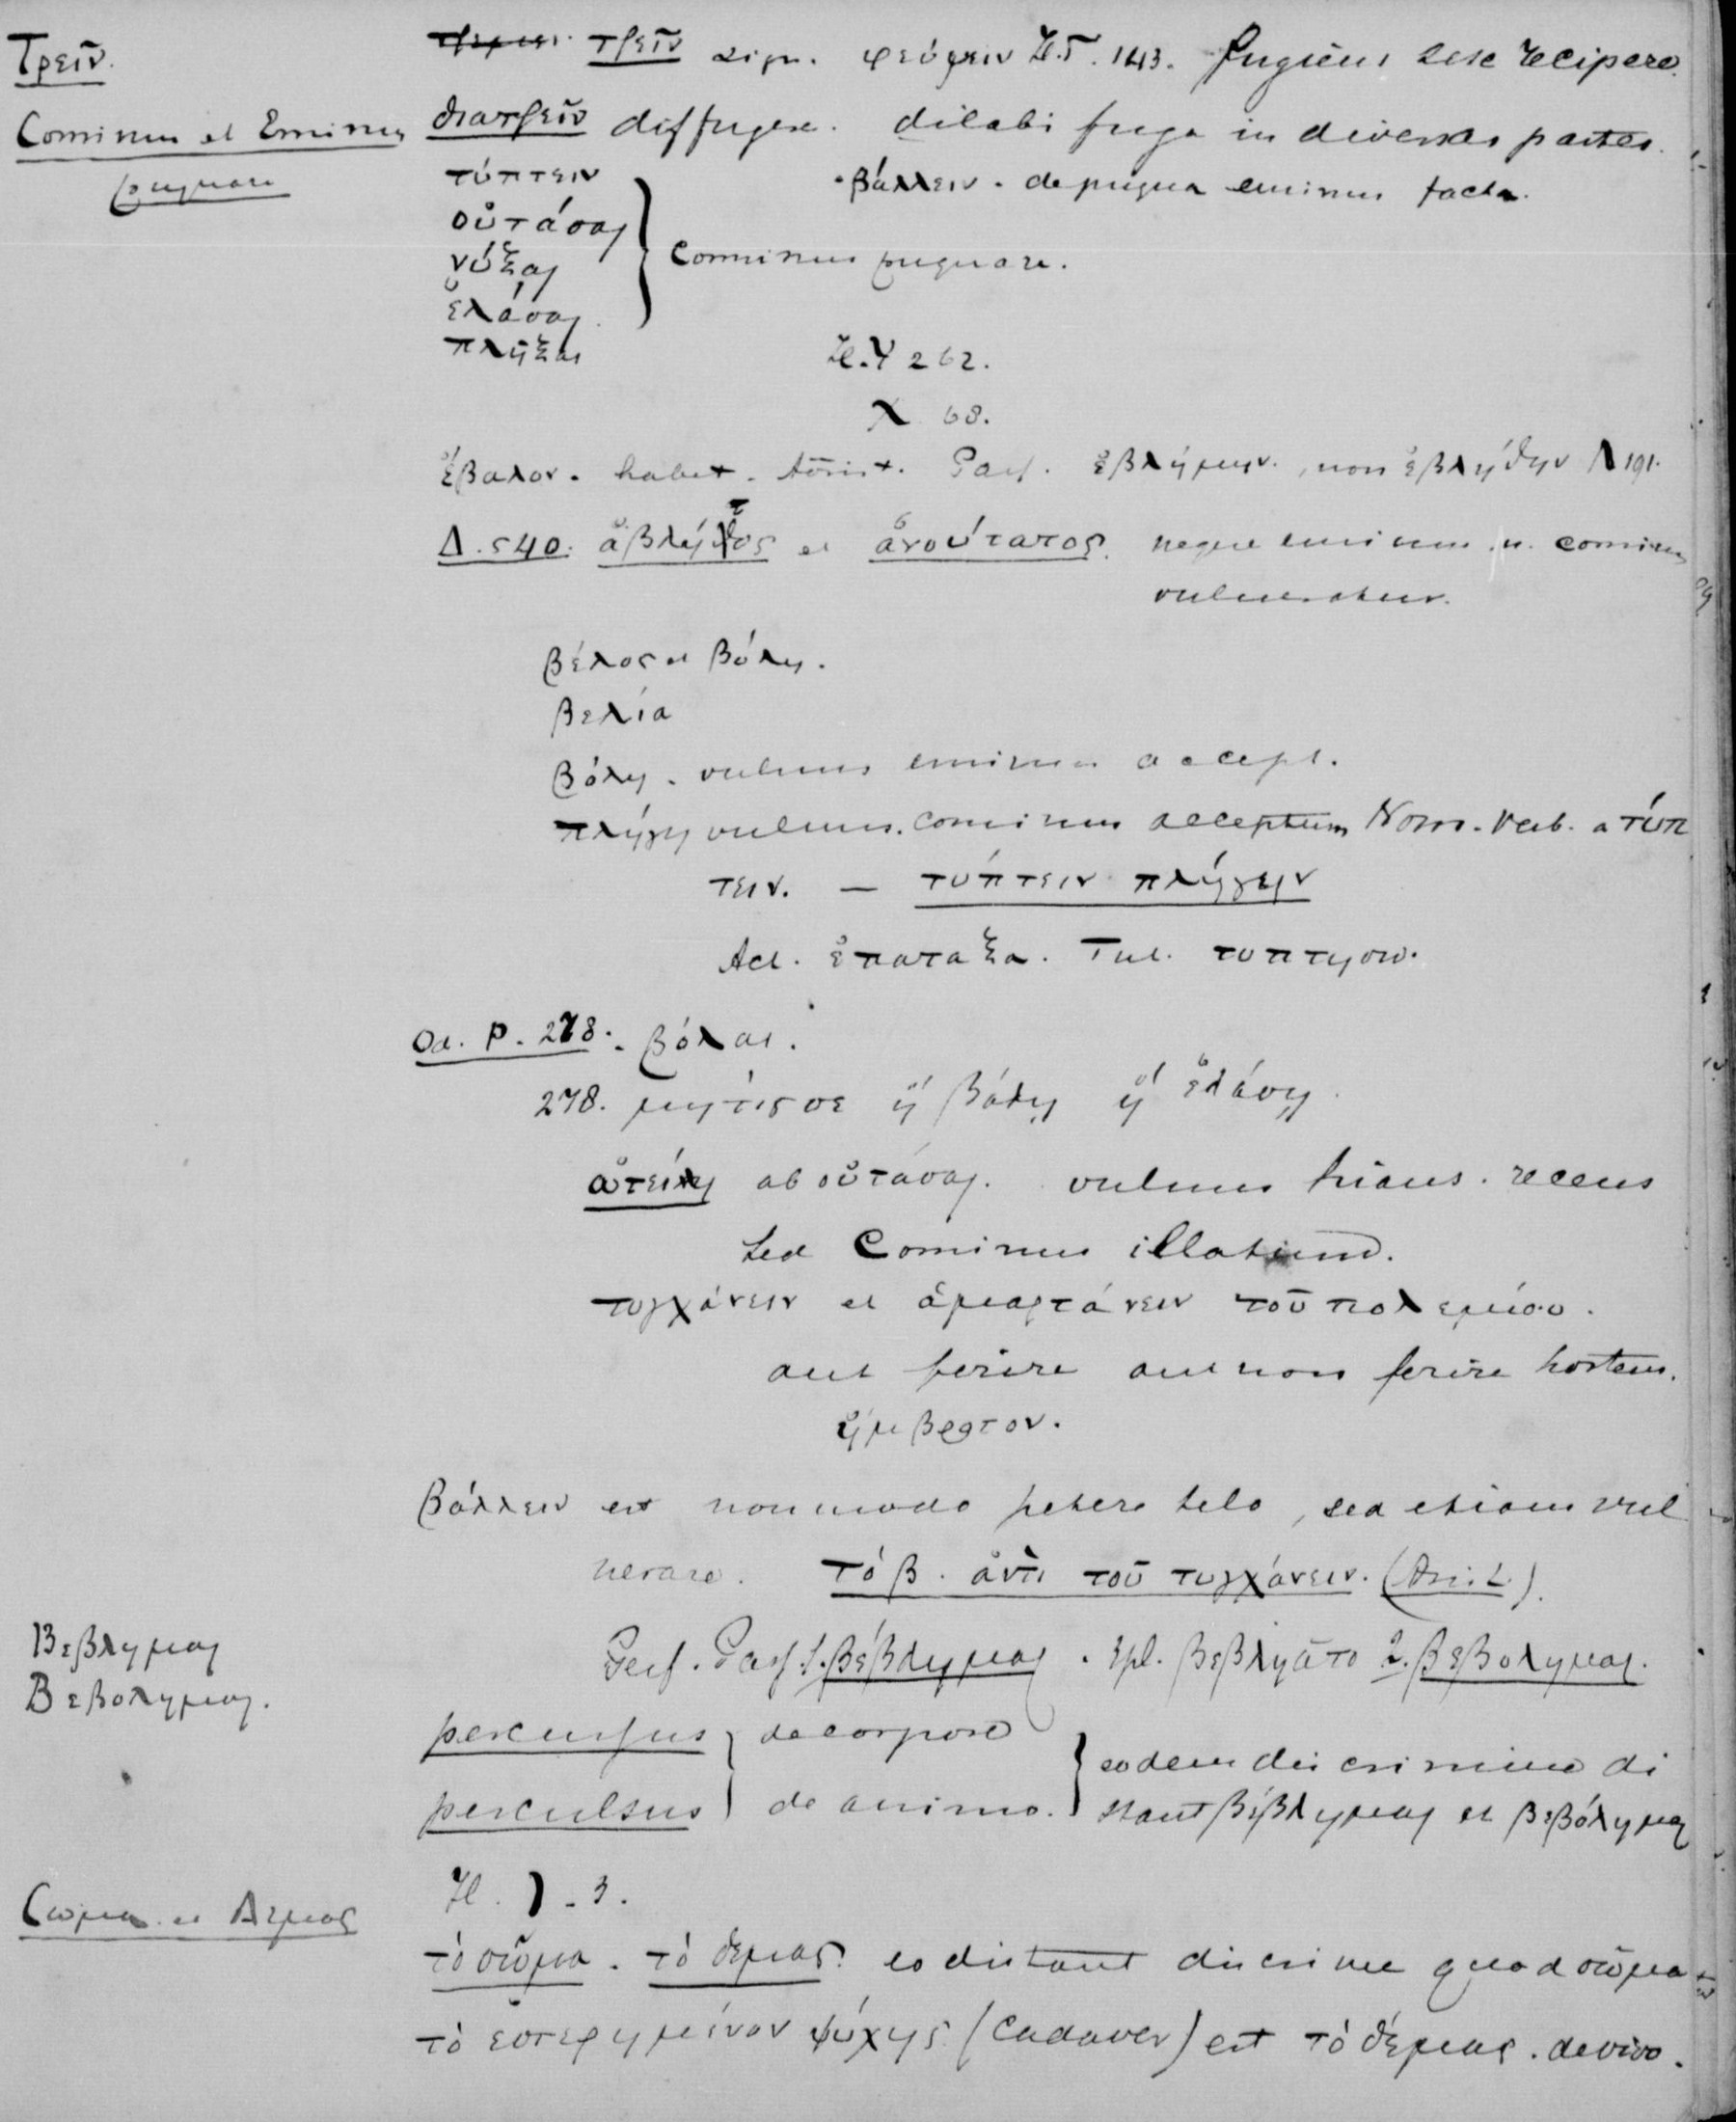 Τρεῖν.
τρεῖν sign. φεύγειν Il. 143. fugiens sese recipere.
Cominus et Eminus
pugnare
διατρεῖν diffugere. dilabi fuga in diversas partes.
τύπτειν
βάλλειν. de pugna eminus facta.
οὐτάσαι
νύξαι
Cominus pugnare.
ἐλάσαι
πλῆξαι
Il. Ψ 262.
Χ 68.
ἔβαλον. habet. Aorist. Pass. ἐβλήμην, non ἐβλήθην Λ 191.
Δ. 540. ἄβλητος et ἀνούτατος. neque eminus n. cominus
vulneratus.
βέλος et βόλη.
βελία
βόλη. vulnus eminus accept.
πλήγη vulnus. cominus acceptum Nom. verb. a τύπ
τειν. — τύπτειν πλήγην
Act. ἐπαταξα. Fut. τυπτησω.
Od. Ρ. 278. βόλαι.
278. μητις σε ἤ βάλῃ ἤ ἐλάσῃ.
ὠτείλη ab οὐτάσαι. vulnus hians. recens
sed Cominus illatum.
τυγχάνειν et ἁμαρτάνειν τοῦ πολεμίου.
aut ferire aut non ferire hostem.
ἤμβροτον.
βάλλειν est non modo petere telo, sed etiam vul
nerare. Τό β. ἀντὶ τοῦ τυγχάνειν.
Βεβλημαι
Βεβολημαι.
Perf. Pass. 1. βέβλημαι. 3 pl. βεβλήατο 2. βεβολημαι.
percussus de corpore
perculsus de animo.
eodem discrimine di
stant βέβλημαι et βεβόλημαι
Il. 3.
Σωμα et Δεμας
τὸ σῶμα. τὸ δεμας. eo distant discrimine quod σῶμα
τὸ εστερημένον ψύχης (Cadaver) est τὸ δέμας. de vivo.